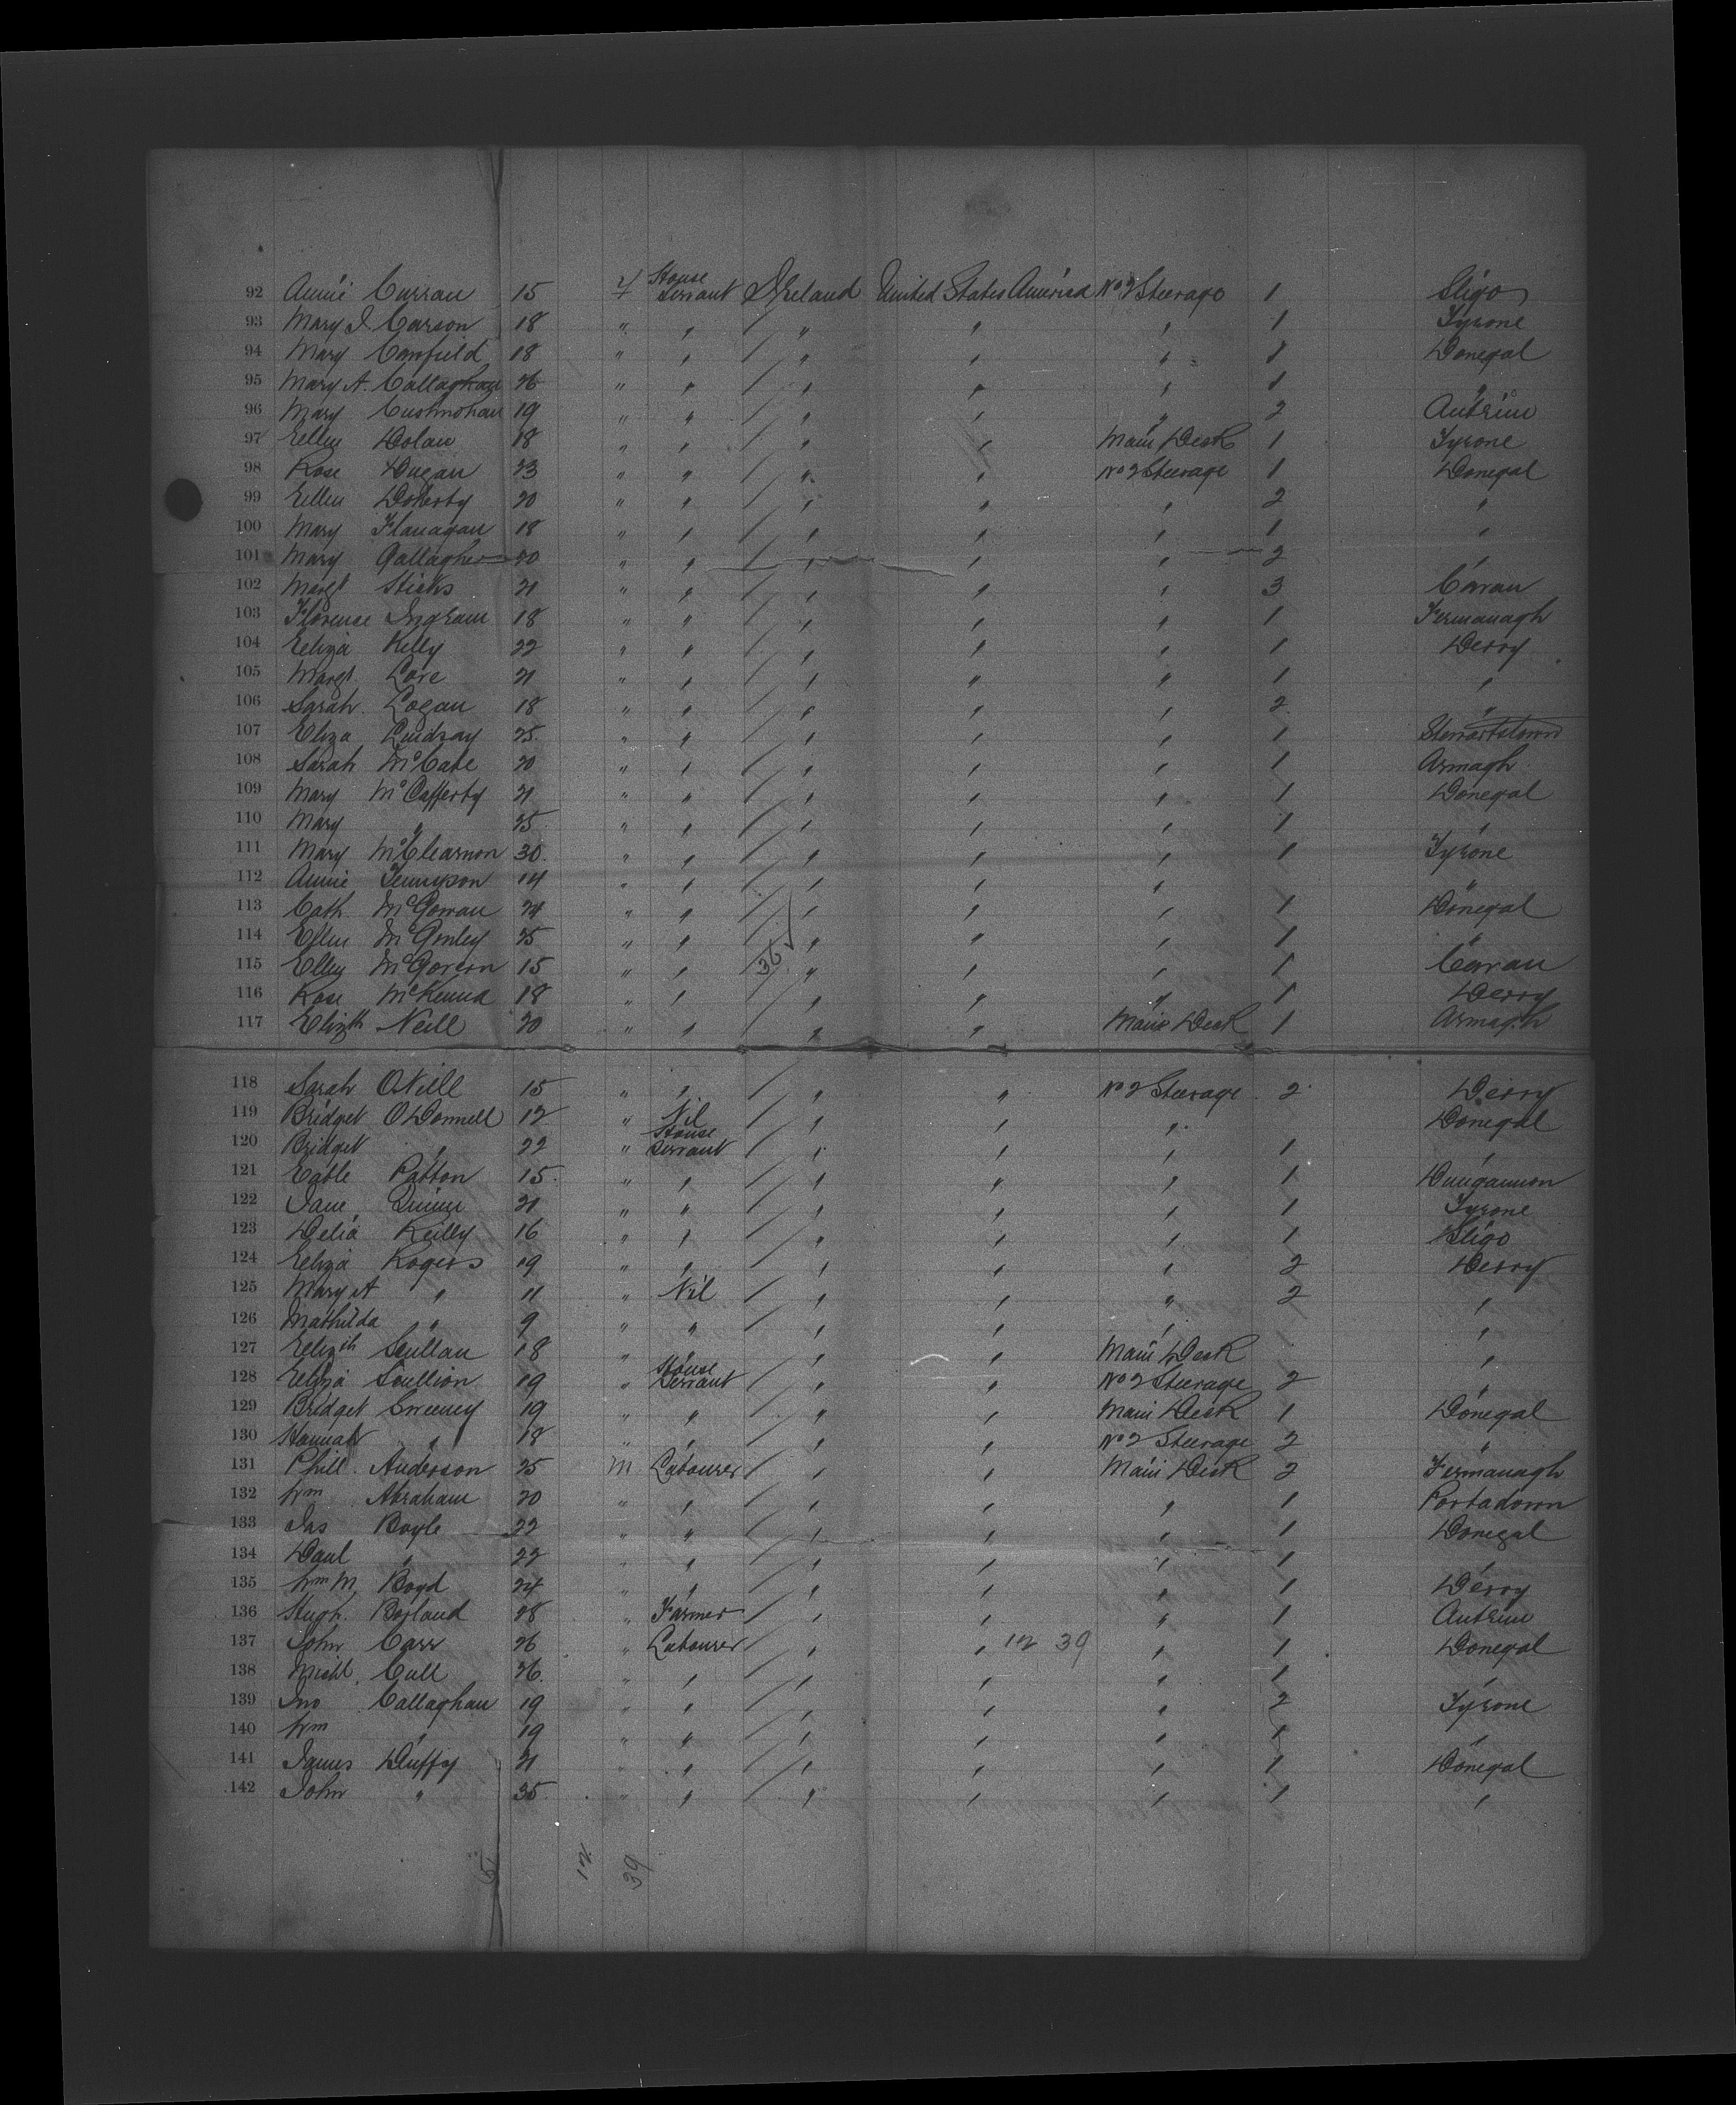 92 Annie Curran 15 f House Servant Ireland United States America No 2 Steerage 1 Sligo
93 Mary J. Carson 18 " " " " " 1 Tyrone
94 Mary Canfield 18 " " " " " 1 Donegal
95 Mary A. Callaghan 26 " " " " " 1 "
96 Mary 19 " " " " " 2 Antrim
97 Ellen Dolan 18 " " " " Main Deck 1 Tyrone
98 Rose Dugan 23 " " " " No 2 Steerage 1 Donegal
99 Ellen Doherty 20 " " " " " 2 "
100 Mary Flanagan 18 " " " " " 1 "
101 Mary Gallagher 20 " " " " " 2 "
102 Margt Hicks 21 " " " " " 3 Cavan
103 Florence Ingram 18 " " " " " 1 Fermanagh
104 Eliza Kelly 22 " " " " " 1 Derry
105 Margt. 21 " " " " " 1 "
106 Sarah Logan 18 " " " " " 2 "
107 Eliza Lindsay 25 " " " " " 1 Stewartstown
108 Sarah McCabe 20 " " " " " 1 Armagh
109 Mary McCafferty 21 " " " " " 1 Donegal
110 Mary " 25 " " " " " 1 "
111 Mary McClearnon 30 " " " " " 1 Tyrone
112 Annie Tennyson 14 " " " " " "
113 Cath. McGowan 24 " " " " " 1 Donegal
114 Ellen McGinley 25 " " " " " 1 "
115 Elley McGovern 15 " " " " " 1 Cavan
116 Rose McKenna 18 " " " " " 1 Derry
117 Elizth Neill 20 " " " " Main Deck 1 Armagh
118 Sarah O'Neill 15 " " " " No 2 Steerage 2 Derry
119 Bridget O'Donnell 12 " Nil " " " Donegal
120 Bridget " 22 " House Servant " " " 1 "
121 Patton 15 " " " " " 1 Dungannon
122 Jane Quinn 21 " " " " " 1 Tyrone
123 Delia Reilly 16 " " " " " 1 Sligo
124 Eliza Rogers 19 " " " " " 2 Derry
125 Mary A " 11 " Nil " " " 2 "
126 Mathilda " 9 " " " " " "
127 Elizth Scullan 18 " " " " Main Deck "
128 Eliza Scullion 19 " House Servant " " No 2 Steerage 2 "
129 Bridget Sweeney 19 " " " " Main Deck 1 Donegal
130 Hannah " 18 " " " " No 2 Steerage 2 "
131 Phill. Anderson 25 m Labourer " " Main Deck 2 Fermanagh
132 Wm Abraham 20 " " " " " 1 Portadown
133 Jas Boyle 22 " " " " " 1 Donegal
134 Danl " 22 " " " " " 1 "
135 Wm M. Boyd 24 " " " " " 1 Derry
136 Hugh. Borland 28 " Farmer " " " 1 Antrim
137 John Carr 26 " Labourer " " 12 39 " 1 Donegal
138 Michl. Cull 26 " " " " " 1 "
139 Jno Callaghan 19 " " " " " 2 Tyrone
140 Wm " 19 " " " " " 1 "
141 James Duffy 21 " " " " " 1 Donegal
142 John " 35 " " " " " 1 "
12 39